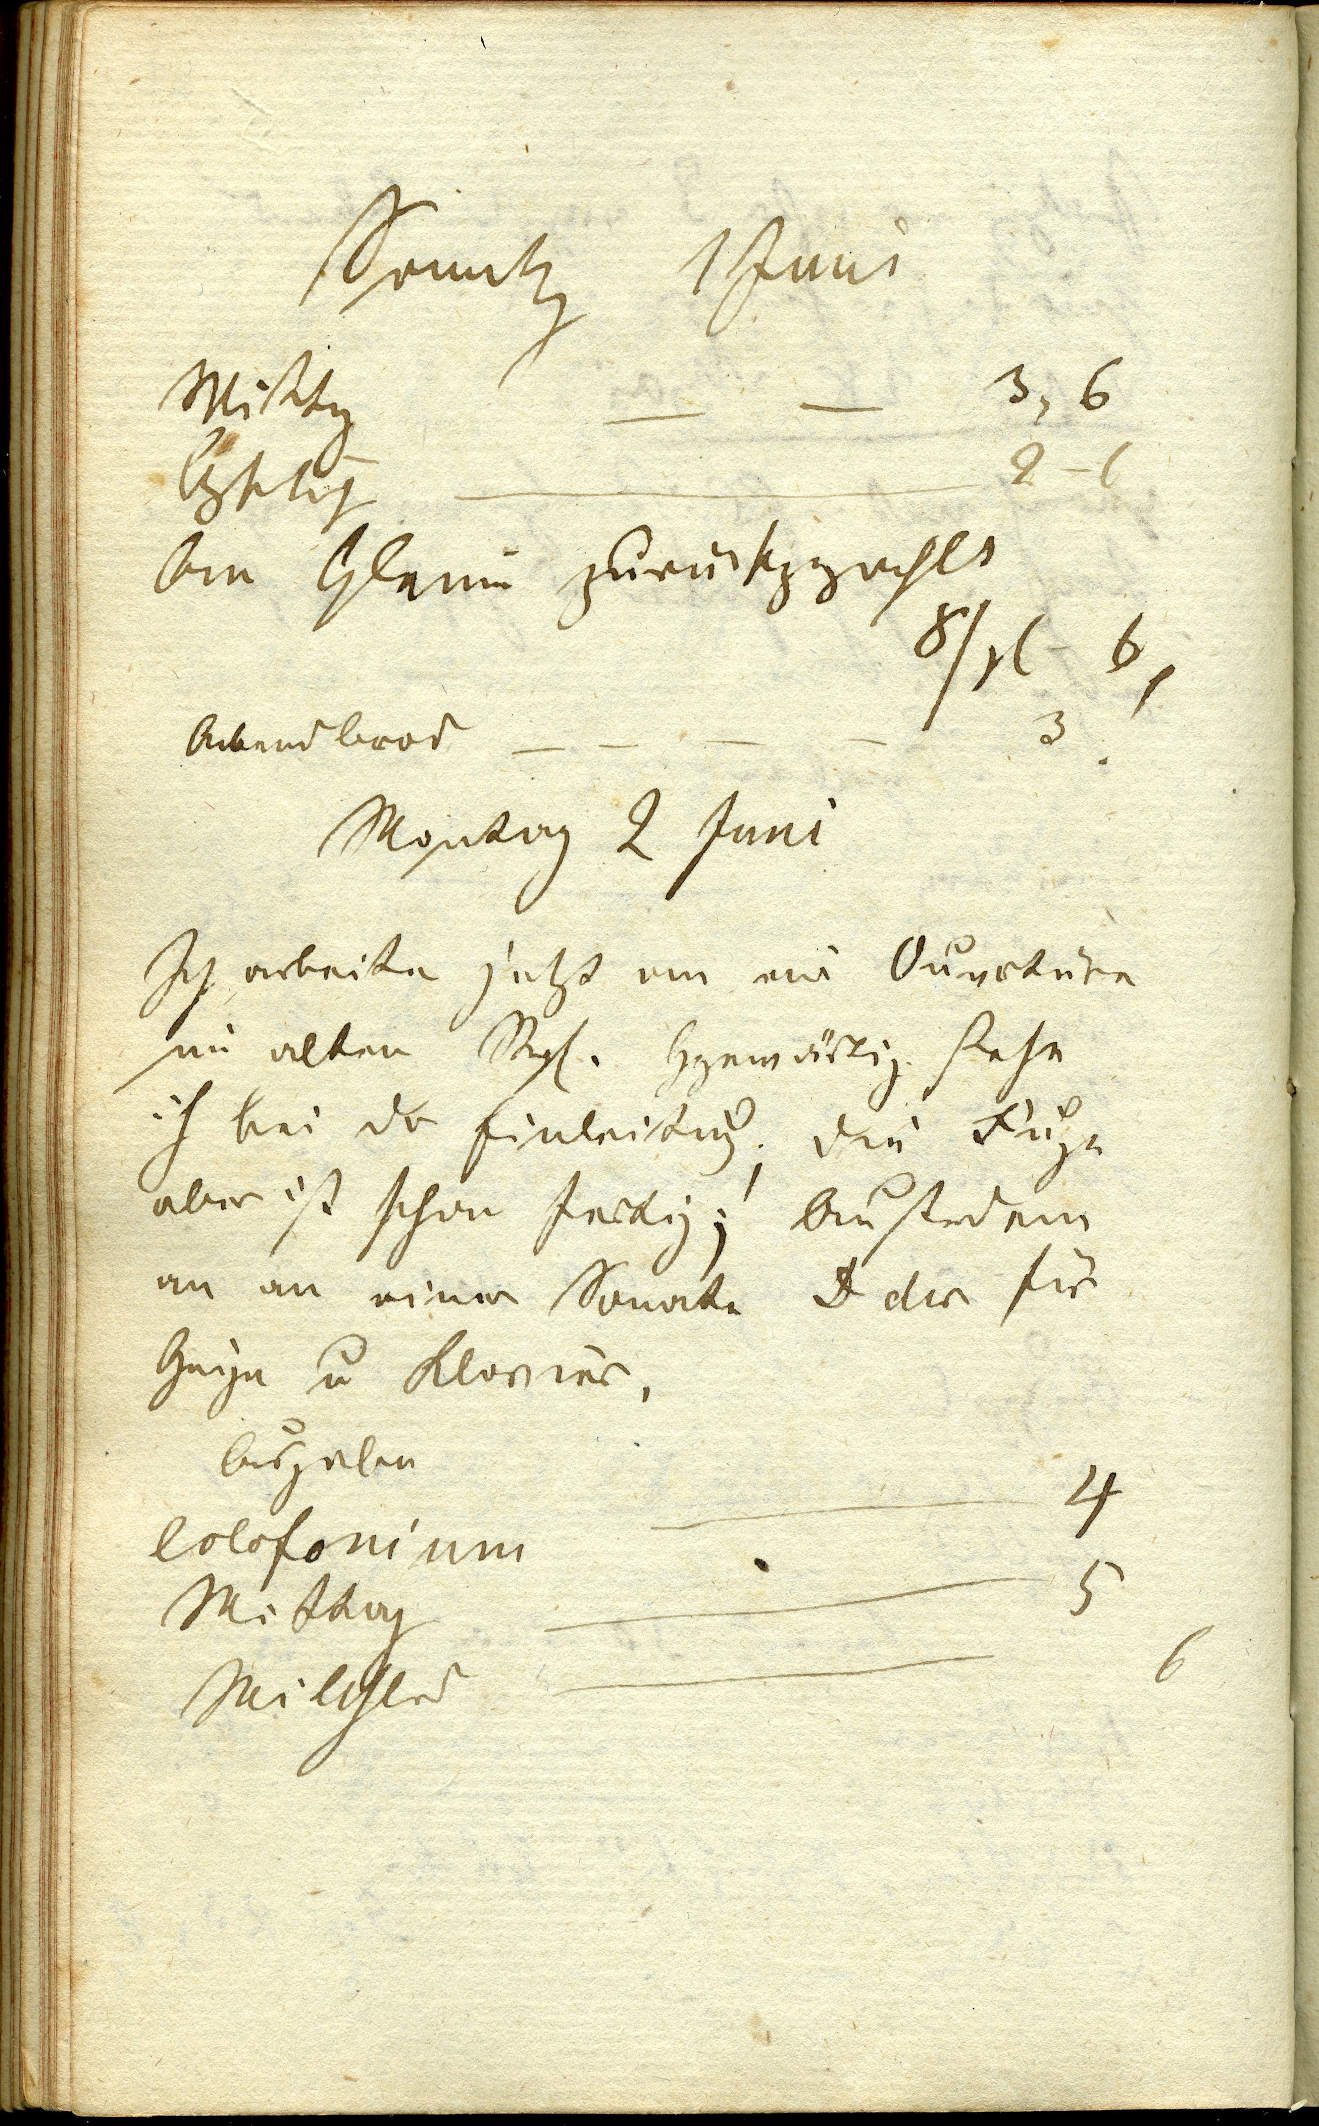 Sonntg 1 Juni
Mittg — — 3, 6
— 2 – 6
An Glemm zurückgezahlt
8/ 6,
Abendbrod — — — — 3.
Montag 2 Juni
Ich arbeite jetzt an eine Ouvertüre
im alten Styl. Ggenwärtig stehe
ich bei der Einleitung, die Fuge
aber ist schon fertig; Ausserdem
an an einer Sonate D dur für
Geige u Klavier,
Ausgaben
Colofonium — 4
Mittag — 5
— 6